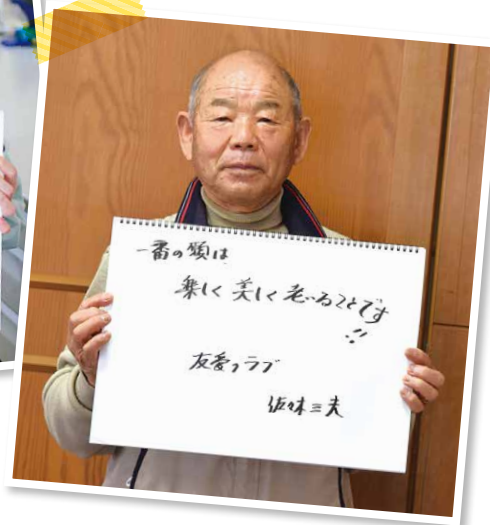 一番の願は
楽しく 美しく 老いることです
!!
友愛クラブ
三夫